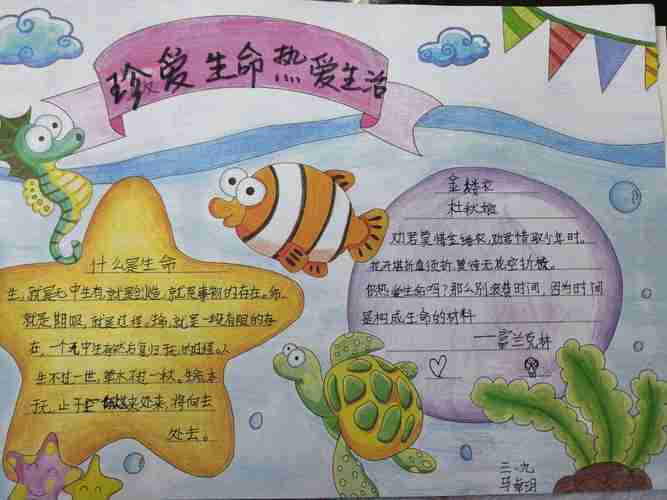 珍爱生命热爱生活
什么是生命
生,就是无中生有,就是创造,就是事物的存在。命,
就是期限,就是过程,生命,就是一段有限的存
在,一个无中生有然后复归于无的过程。人
生不过一世,草木不过一秋。生命本
于无,止于 来处来,将向去
处去。
金缕衣
杜秋娘
劝君莫惜金缕衣,劝君惜取少年时。
花开堪折直须折,莫待无花空折枝。
你热爱生命吗?那么别浪费时间,因为时间
是构成生命的材料
——富兰克林
三.九